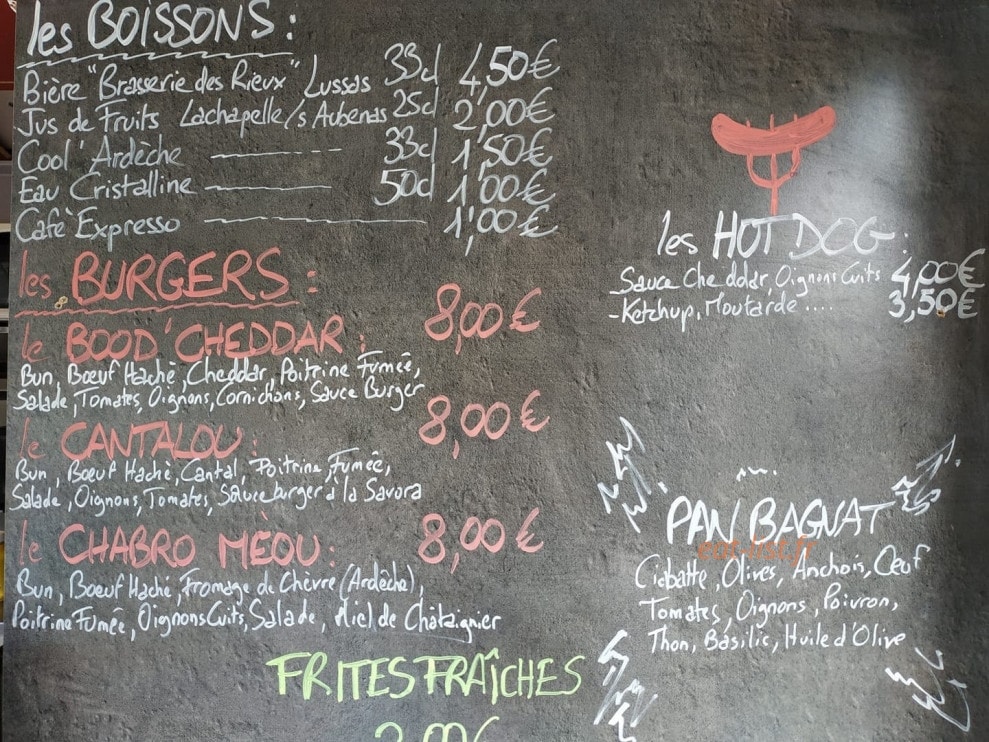 les BOISSONS :
Bière "Brasserie des Rieux" Lussas 33cl 4,50€
Jus de Fruits Lachapelle/s Aubenas 25cl 2,00€
Cool'Ardèche 33cl 1,50€
Eau Cristalline 50cl 1,00€
Cafè Expresso 1,00€
les BURGERS :
le BOOD'CHEDDAR : 8,00€
Bun, Bœuf Hachè, Cheddar, Poitrine Fumée,
Salade, Tomates, Oignons, Cornichons, Sauce Burger
le CANTALOU : 8,00€
Bun, Bœuf Hachè, Cantal, Poitrine Fumêe,
Salade, Oignons, Tomates, Sauce burger à la Savora
le CHABRO MÈOU : 8,00€
Bun, Bœuf Haché, Fromage de Chèvre (Ardèche),
Poitrine Fumée, Oignons Cuits, Salade, Miel de Châtaignier
FRITES FRAÎCHES
2,00€
les HOT DOG :
- Sauce Cheddar, Oignons Cuits 4,00€
- Ketchup, Moutarde .... 3,50€
PAN BAGNAT
eat-list.fr
Ciabatte, Olives, Anchois, Oeuf
Tomates, Oignons, Poivron,
Thon, Basilic, Huile d'Olive